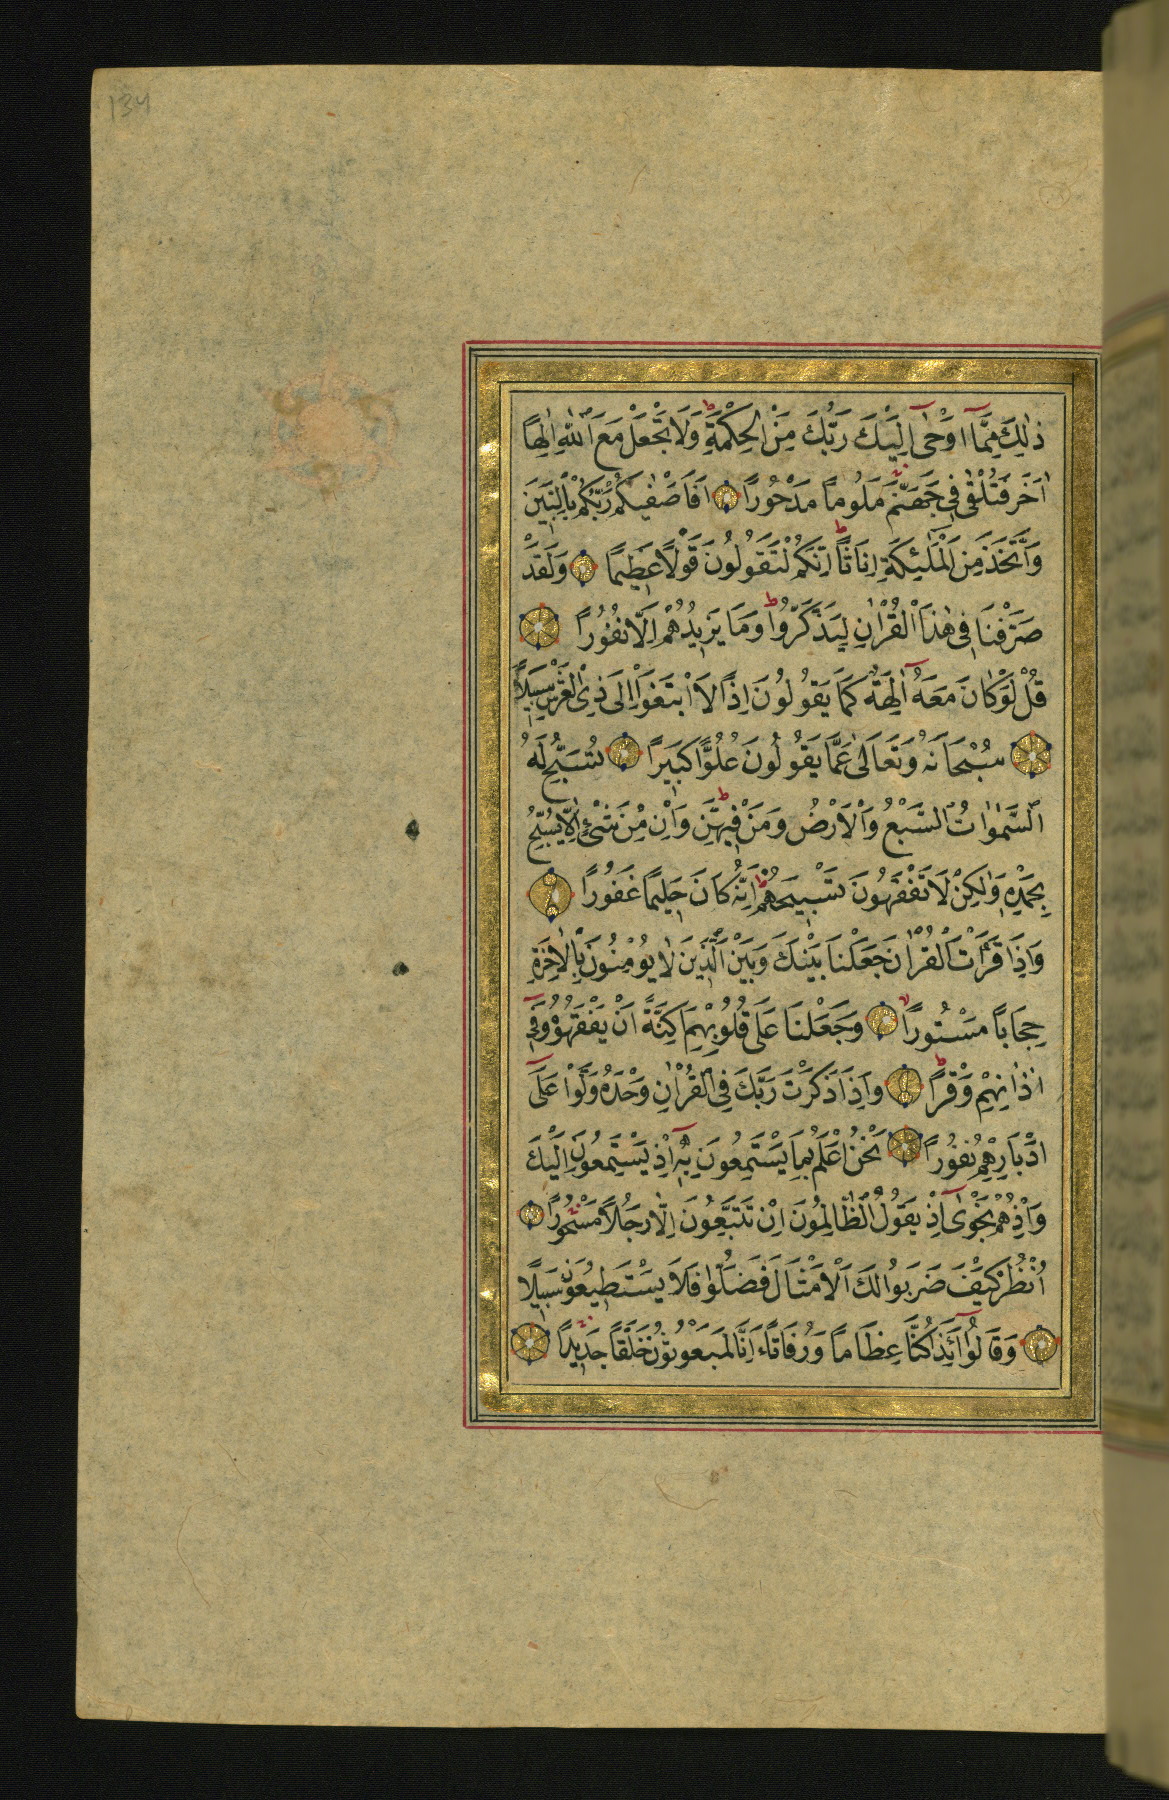 134
ذٰلِكَ مِمَّا اَوْحٰى اِلَيْكَ رَبُّكَ مِنَ الْحِكْمَةِ ط وَلَا تَجْعَلْ مَعَ اللّٰهِ اِلٰهًا
اٰخَرَ فَتُلْقٰى فِى جَهَنَّمَ مَلُومًا مَدْحُورًا اَفَاَصْفٰيكُمْ رَبُّكُمْ بِالْبَنِينَ
وَاتَّخَذَ مِنَ الْمَلٰئِكَةِ اِنَاثًا ط اِنَّكُمْ لَتَقُولُونَ قَوْلًا عَظِيمًا وَلَقَدْ
صَرَّفْنَا فِى هٰذَا الْقُرْاٰنِ لِيَذَّكَّرُوا ط وَمَا يَزِيدُهُمْ اِلَّا نُفُورًا
قُلْ لَوْ كَانَ مَعَهُ اٰلِهَةٌ كَمَا يَقُولُونَ اِذًا لَابْتَغَوْا اِلٰى ذِى الْعَرْشِ سَبِيلًا
سُبْحَانَهُ وَتَعَالٰى عَمَّا يَقُولُونَ عُلُوًّا كَبِيرًا تُسَبِّحُ لَهُ
السَّمٰوٰاتُ السَّبْعُ وَالْاَرْضُ وَمَنْ فِيهِنَّ ط وَاِنْ مِنْ شَىْءٍ اِلَّا يُسَبِّحُ
بِحَمْدِهِ وَلٰكِنْ لَا تَفْقَهُونَ تَسْبِيحَهُمْ ط اِنَّهُ كَانَ حَلِيمًا غَفُورًا
وَاِذَا قَرَاْتَ الْقُرْاٰنَ جَعَلْنَا بَيْنَكَ وَبَيْنَ الَّذِينَ لَا يُؤْمِنُونَ بِالْاٰخِرَةِ
حِجَابًا مَسْتُورًا لا وَجَعَلْنَا عَلٰى قُلُوبِهِمْ اَكِنَّةً اَنْ يَفْقَهُوهُ وَفِى
اٰذَانِهِمْ وَقْرًا ط وَاِذَا ذَكَرْتَ رَبَّكَ فِى الْقُرْاٰنِ وَحْدَهُ وَلَّوْا عَلٰى
اَدْبَارِهِمْ نُفُورًا نَحْنُ اَعْلَمُ بِمَا يَسْتَمِعُونَ بِهِ اِذْ يَسْتَمِعُونَ اِلَيْكَ
وَاِذْ هُمْ نَجْوٰى اِذْ يَقُولُ الظَّالِمُونَ اِنْ تَتَّبِعُونَ اِلَّا رَجُلًا مَسْحُورًا
اُنْظُرْ كَيْفَ ضَرَبُوا لَكَ الْاَمْثَالَ فَضَلُّوا فَلَا يَسْتَطِيعُونَ سَبِيلًا
وَقَالُوا ءَاِذَا كُنَّا عِظَامًا وَرُفَاتًا ءَاِنَّا لَمَبْعُوثُونَ خَلْقًا جَدِيدًا